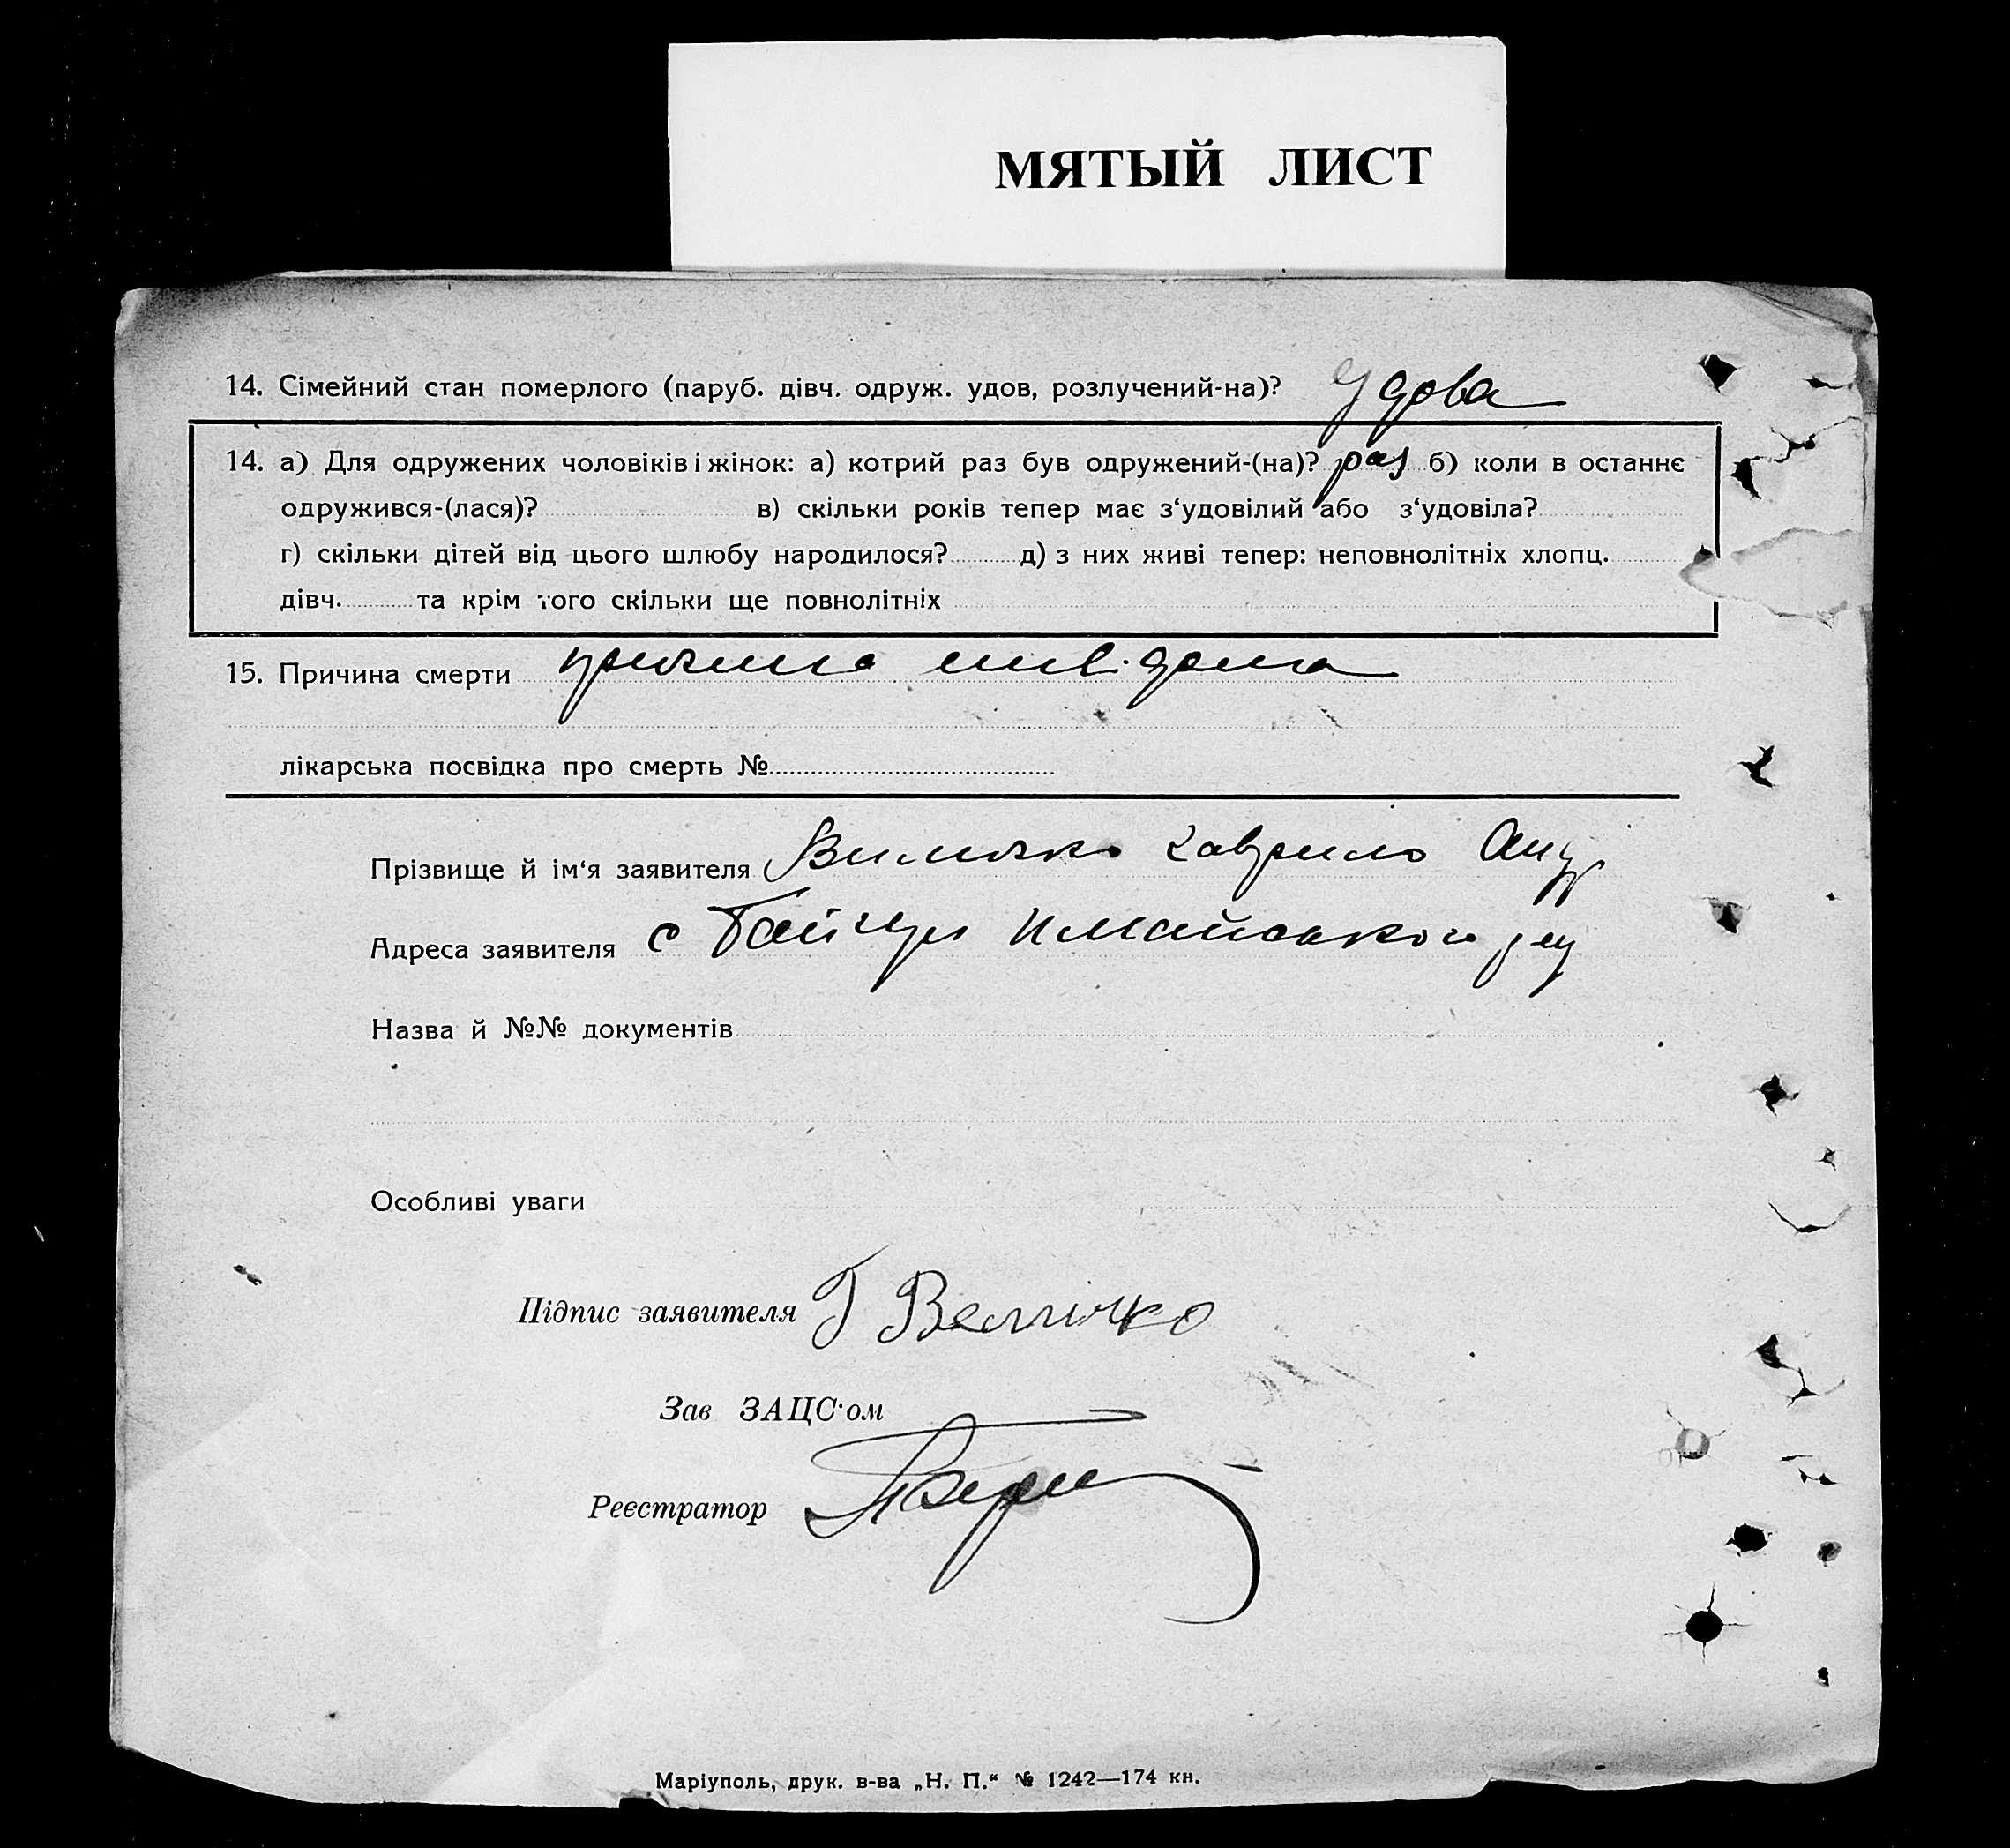 МЯТЫЙ ЛИСТ
14. Сімейний стан померлого (паруб. дівч. одруж. удов, розлучений-на)? Удова
14. а) Для одружених чоловіків і жінок: а) котрий раз був одружений-(на)? раз б) коли в останнє
одружився-(лася)? в) скільки років тепер має з‘удовілий або з‘удовіла?
г) скільки дітей від цього шлюбу народилося? д) з них живі тепер: неповнолітніх хлопц.
дівч. та крім того скільки ще повнолітніх
15. Причина смерти причина невідома
лікарська посвідка про смерть №
Прізвище й ім‘я заявителя Величко Гаврило Андр
Адреса заявителя с Байчул
Назва й №№ документів
Особливі уваги
Підпис заявителя Г Величко
Зав ЗАЦС‘ом
Реєстратор
Маріуполь, друк. в-ва „Н. П.“ № 1242—174 кн.